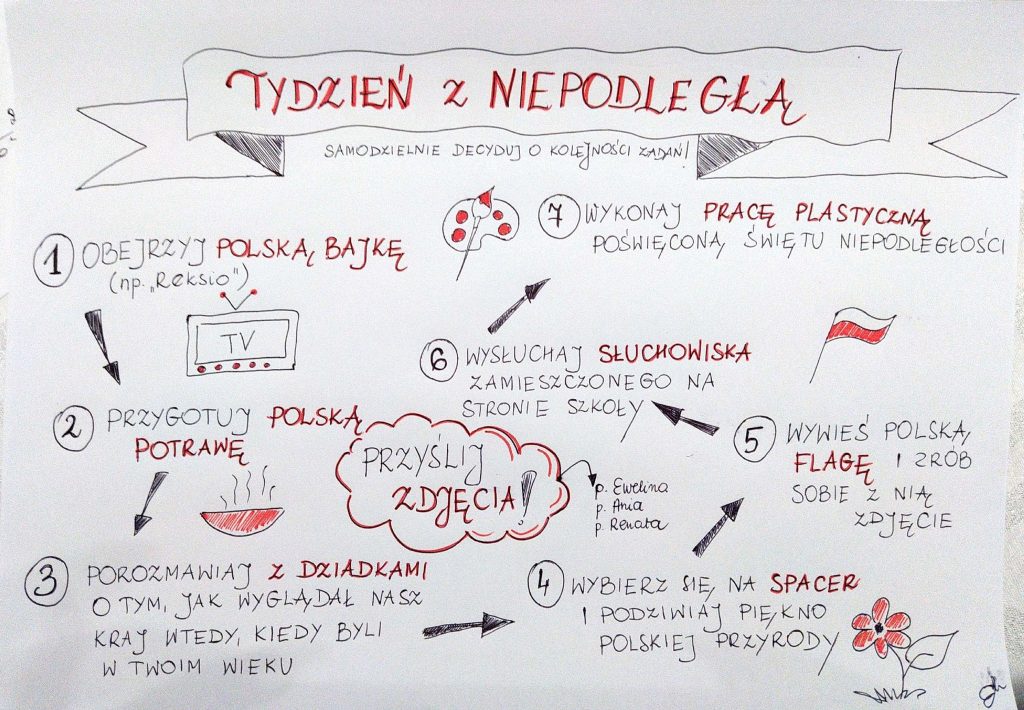 TYDZIEŃ z NIEPODLEGŁĄ
SAMODZIELNIE DECYDUJ O KOLEJNOŚCI ZADAŃ!
1 OBEJRZYJ POLSKĄ BAJKĘ
(np. „Reksio")
TV
2 PRZYGOTUJ POLSKĄ
POTRAWĘ
3 POROZMAWIAJ Z DZIADKAMI
O TYM, JAK WYGLĄDAŁ NASZ
KRAJ WTEDY, KIEDY BYLI
W TWOIM WIEKU
4 WYBIERZ SIĘ NA SPACER
I PODZIWIAJ PIĘKNO
POLSKIEJ PRZYRODY
5 WYWIEŚ POLSKĄ
FLAGĘ I ZRÓB
SOBIE Z NIĄ
ZDJĘCIE
6 WYSŁUCHAJ SŁUCHOWISKA
ZAMIESZCZONEGO NA
STRONIE SZKOŁY
7 WYKONAJ PRACĘ PLASTYCZNĄ
POŚWIĘCONĄ ŚWIĘTU NIEPODLEGŁOŚCI
PRZYŚLIJ
ZDJĘCIA!
p. Ewelina
p. Ania
p. Renata